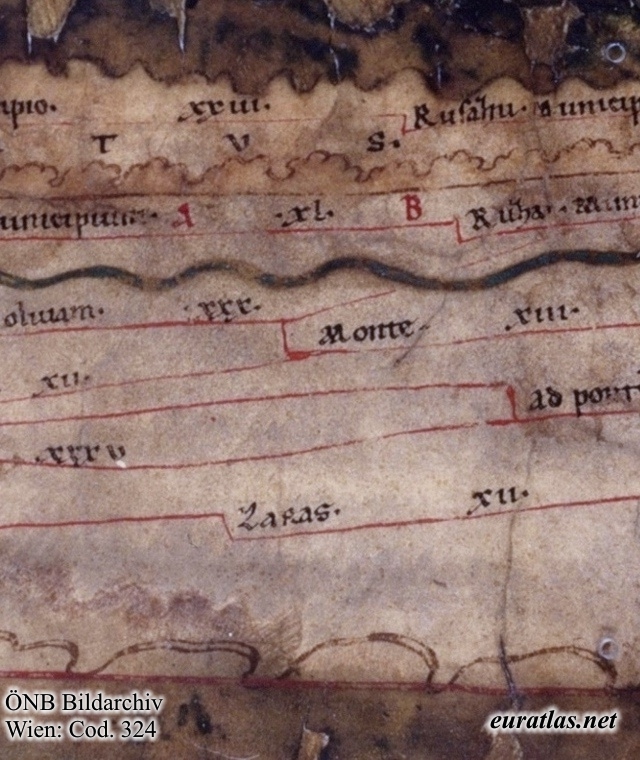 ipio. xxiii. Rusahu. municip
T V S.
unicipium. A .xl. B Ruha. mun
oliuam. .xxx.
Monte xiii.
xii.
ad pont
.xxxv
Zaras. xii.
ÖNB Bildarchiv
Wien: Cod. 324
euratlas.net